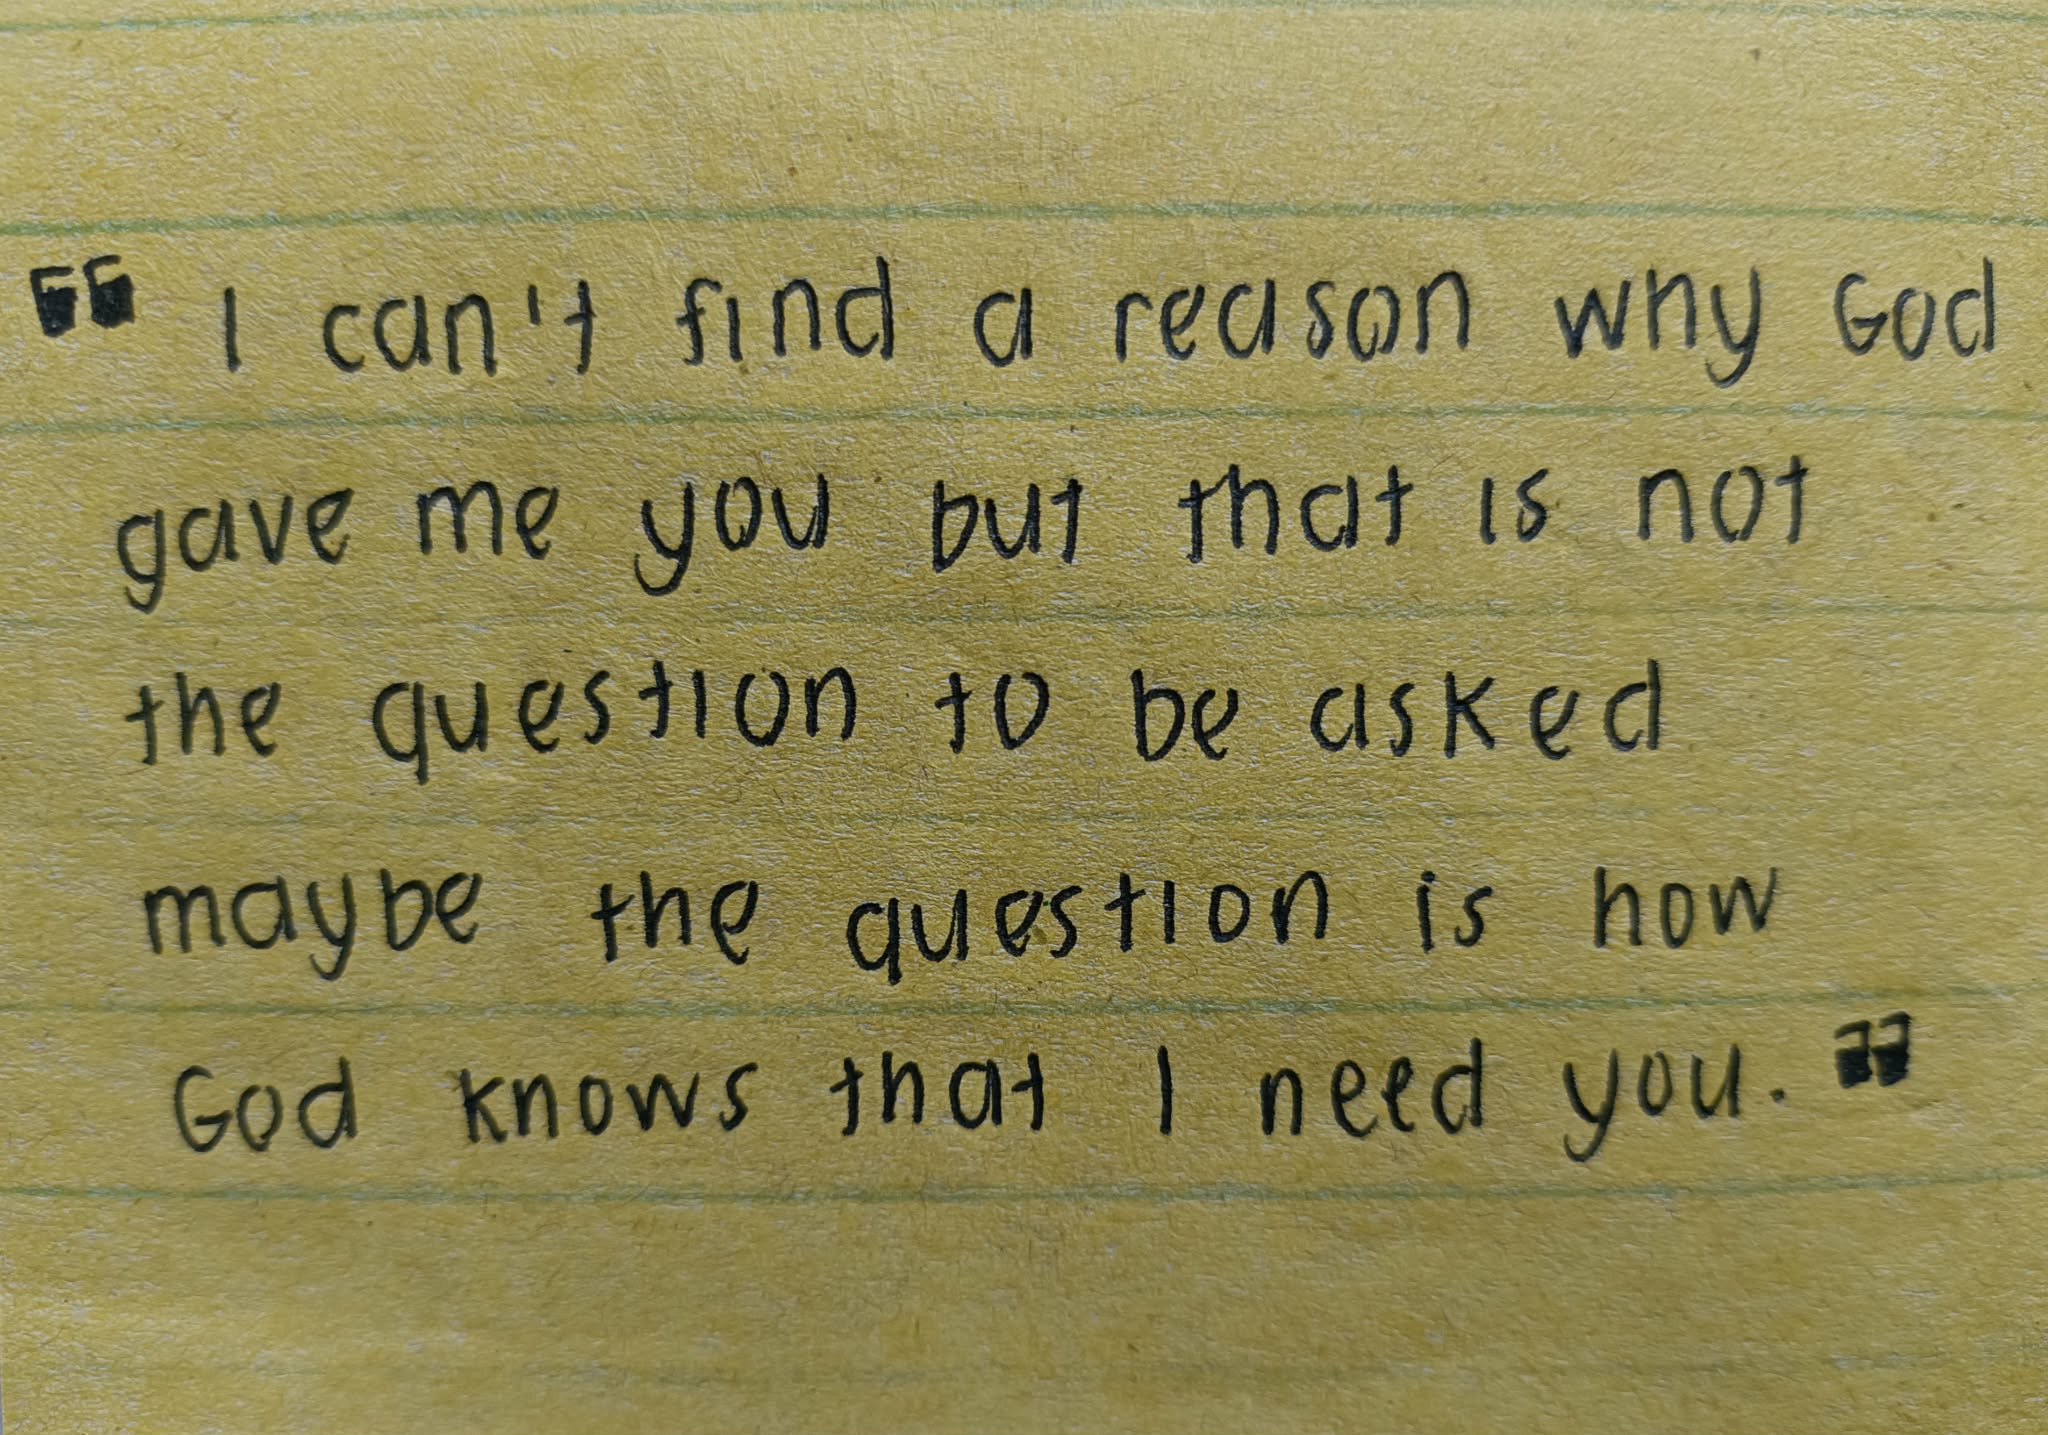 "I can't find a reason why God
gave me you but that is not
the question to be asked
maybe the question is how
God knows that I need you."